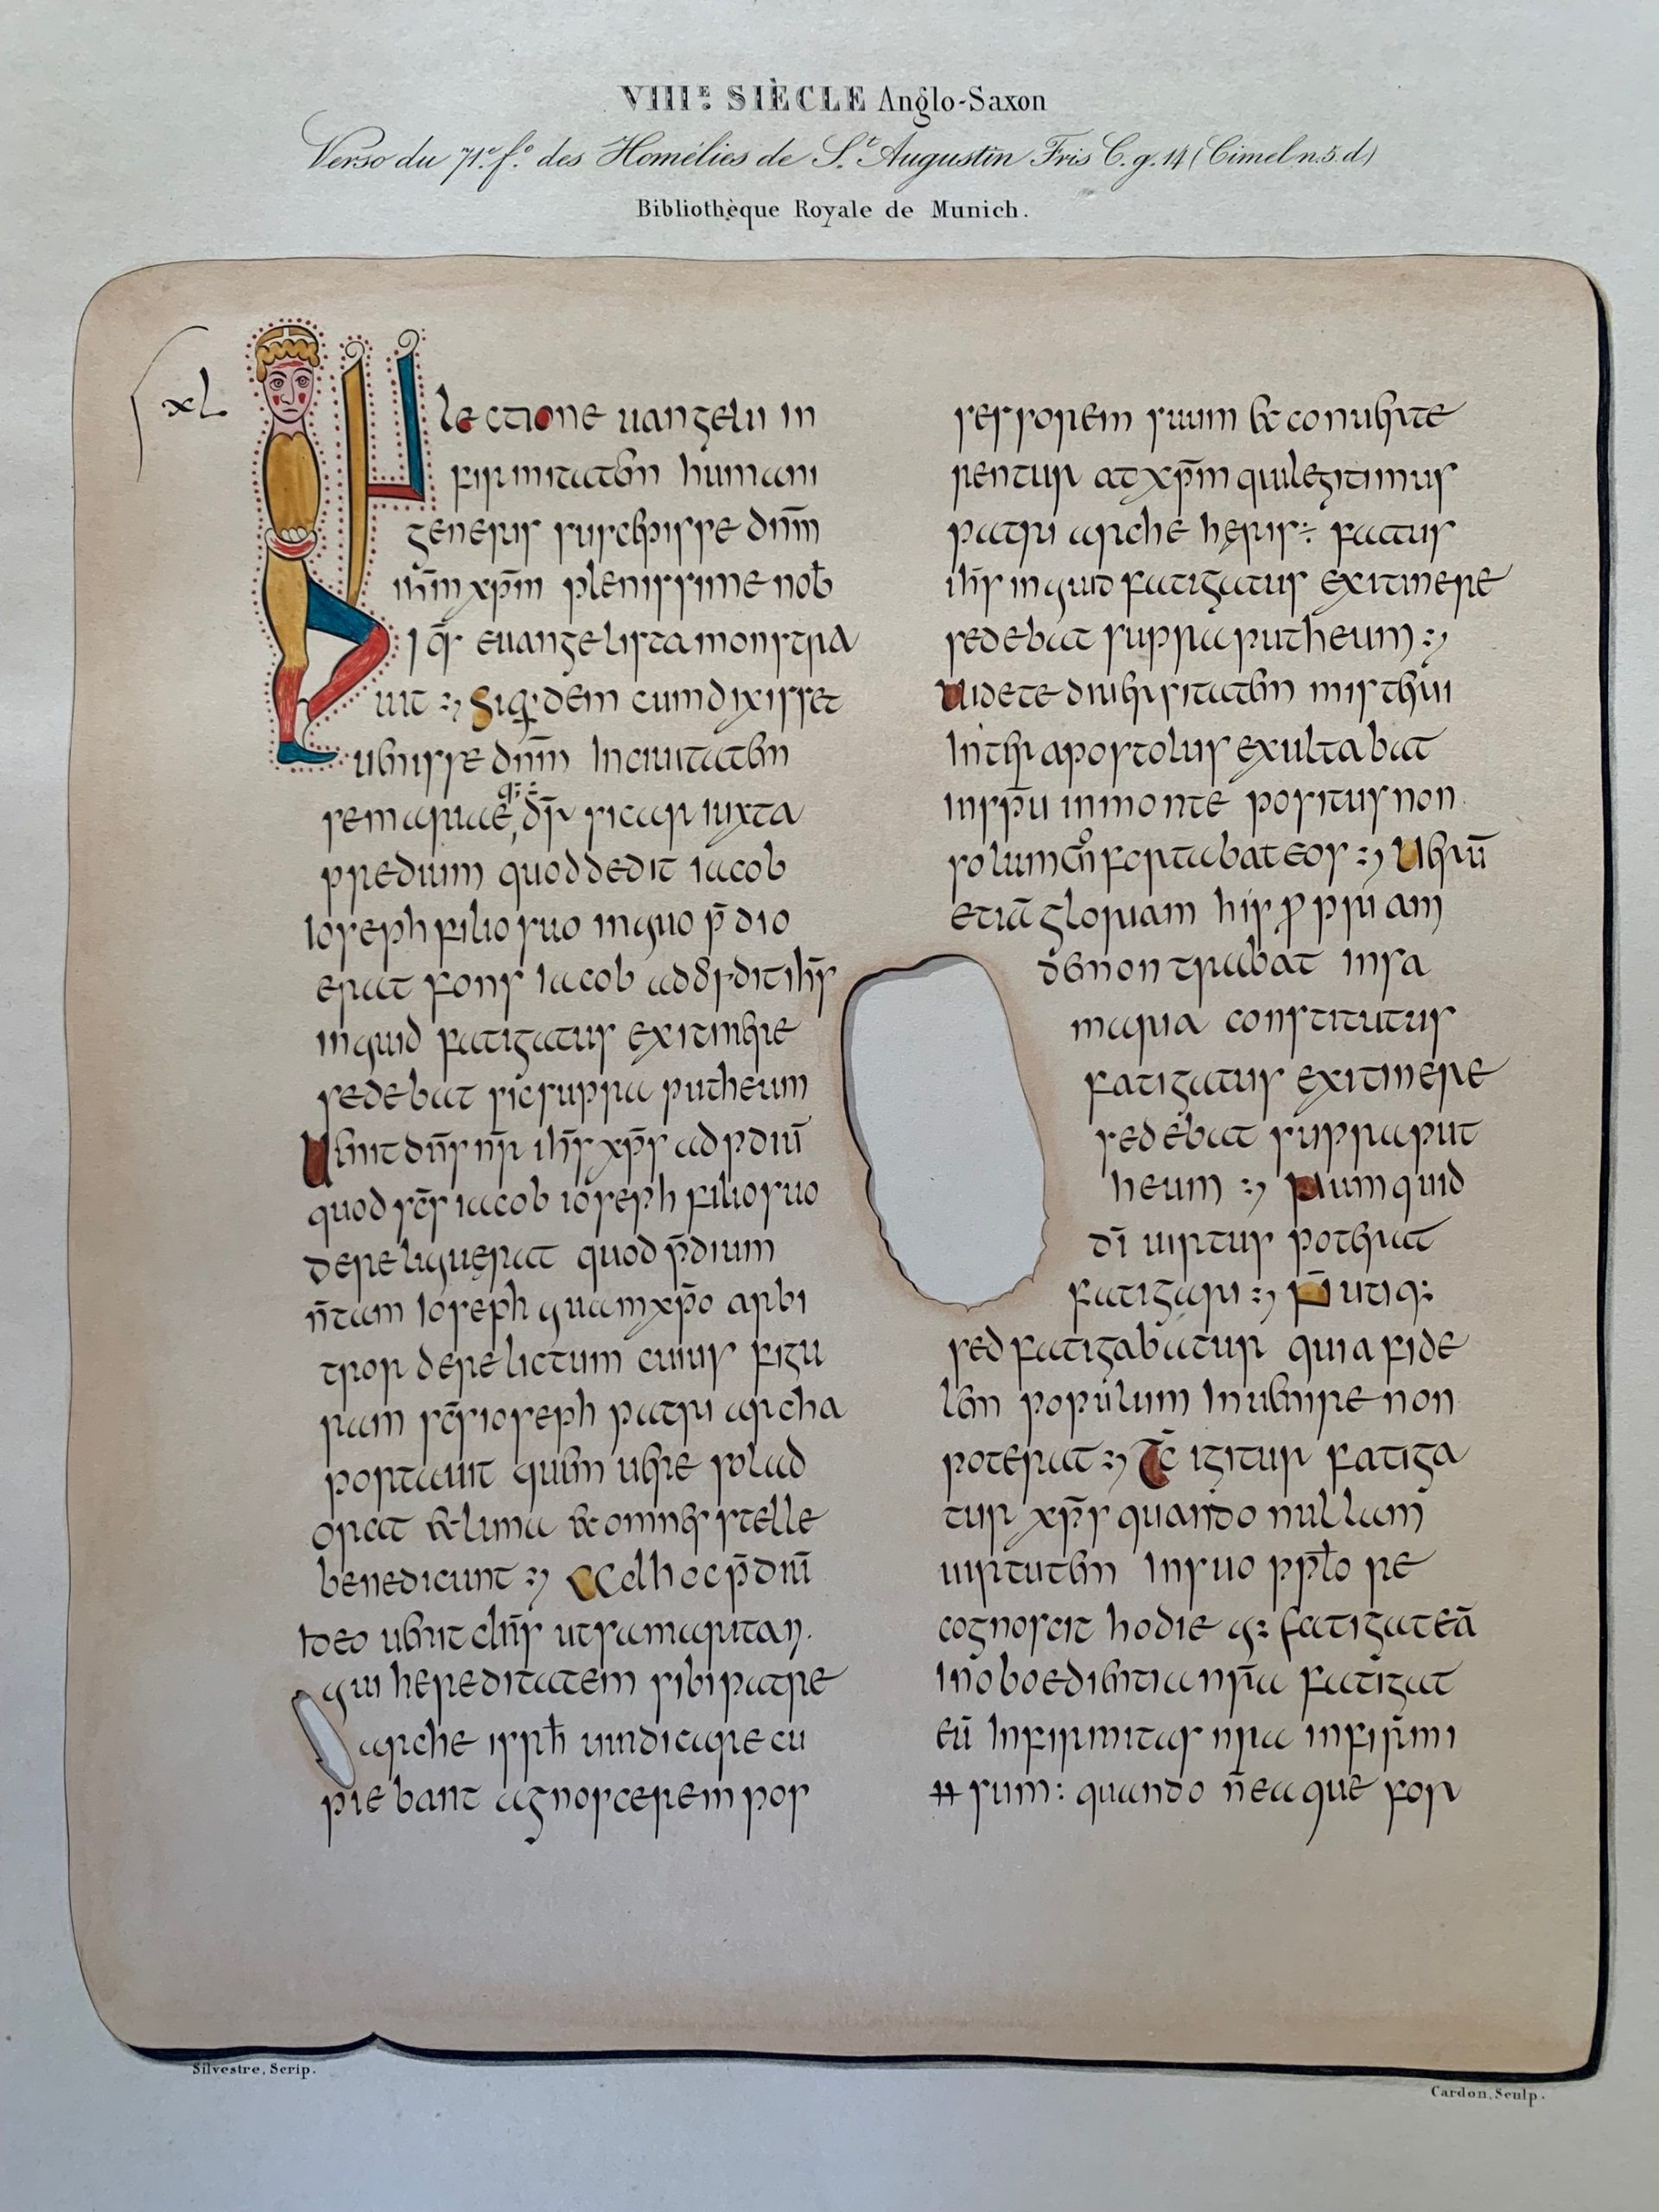 VIIIᴱ SIÈCLE Anglo-Saxon
Verso du 71ᵉ. fº. des Homélies de Sᵗ. Augustin Fris C. g. 14 (Cimel n. 5. d)
Bibliothèque Royale de Munich.
xL
IN lectione uangelii in
firmitatem humani
generis suscepisse dnm̄
nr̄m xpm̄ plenissime nob
is euangelista monstra
uit :, Siq dem cum dixisset
uenisse dnm̄ In ciuitatem
samariae, sicar iuxta
predium quod dedit iacob
Ioseph filio suo in quo p̄dio
erat fons Iacob ih̄s
inquid fatigatus ex itinere
sedebat sic supra putheum
Uenit dn̄s nr̄ ih̄s xp̄s ad pdiū
quod sc̄s iacob ioseph filio suo
dereliquerat quod p̄dium
n̄ tam Ioseph quam xp̄o arbi
tror derelictum cuius figu
ram sc̄s ioseph patri archa
portauit quem uere sol ad
orat & luna & omnes stelle
benedicunt :, Ad hoc p̄diū
ideo uenit dn̄s ut samaritan.
qui hereditatem sibi patre
arche isrh̄ uindicare cu
piebant agnoscerem pos
sessorem suum & conuerte
rentur at xpm̄ qui legitimus
patri arche heris :- factus
ih̄s inquid fatigatus ex itinere
sedebat supra putheum :,
Uidete diuersitatem misterii
Inter apostolus exultabat
in sp̄u in monte positus non
solum cōfortabat eos :, Uerū
etiā gloriam his ꝓpriam
demontrabat in sa
maria constitutus
fatigatus ex itinere
sedebat supra put
heum :, Numquid
dī uirtus poterat
fatigari :, N̄ utiq:
sed fatigabatur quia fide
lem populum Inuenire non
poterat :, Tc̄ igitur fatiga
tur xp̄s quando nullam
uirtutem In suo ppl̄o re
cognoscit hodie q: fatigat eā
Inoboedientia nr̄a fatigat
eū Infirmitas nr̄a infirmi
sum: quando n̄ ea que for
Silvestre, Scrip.
Cardon, Sculp.